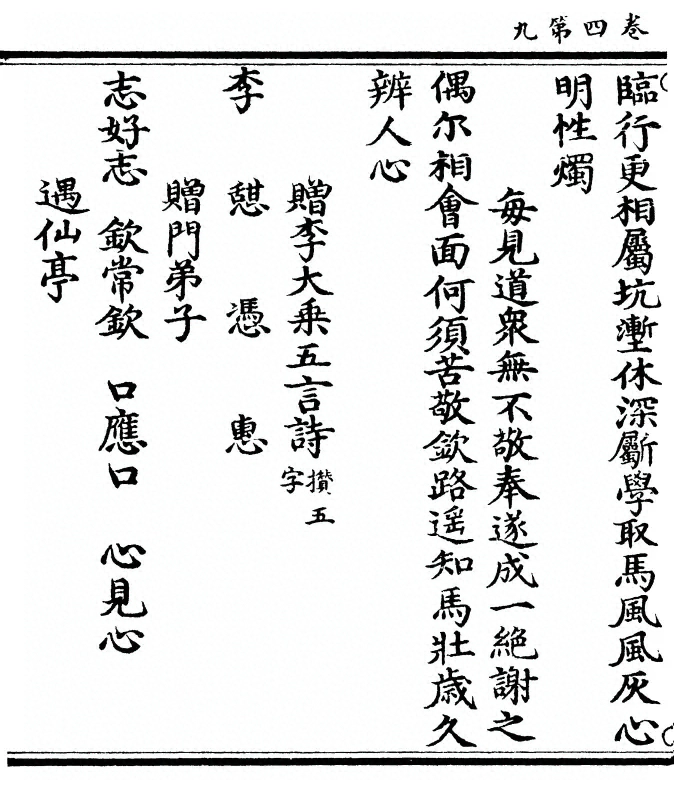 卷四第九
臨行更相屬坑塹休深斸學取馬風風灰心
明性燭
每見道衆無不敬奉遂成一絶謝之
偶尔相會面何須苦敬欽路遥知馬壯歲久
辨人心
贈李大乘五言詩攢五字
李憇憑惠
贈門弟子
志好志 欽常欽 口應口 心見心
遇仙亭